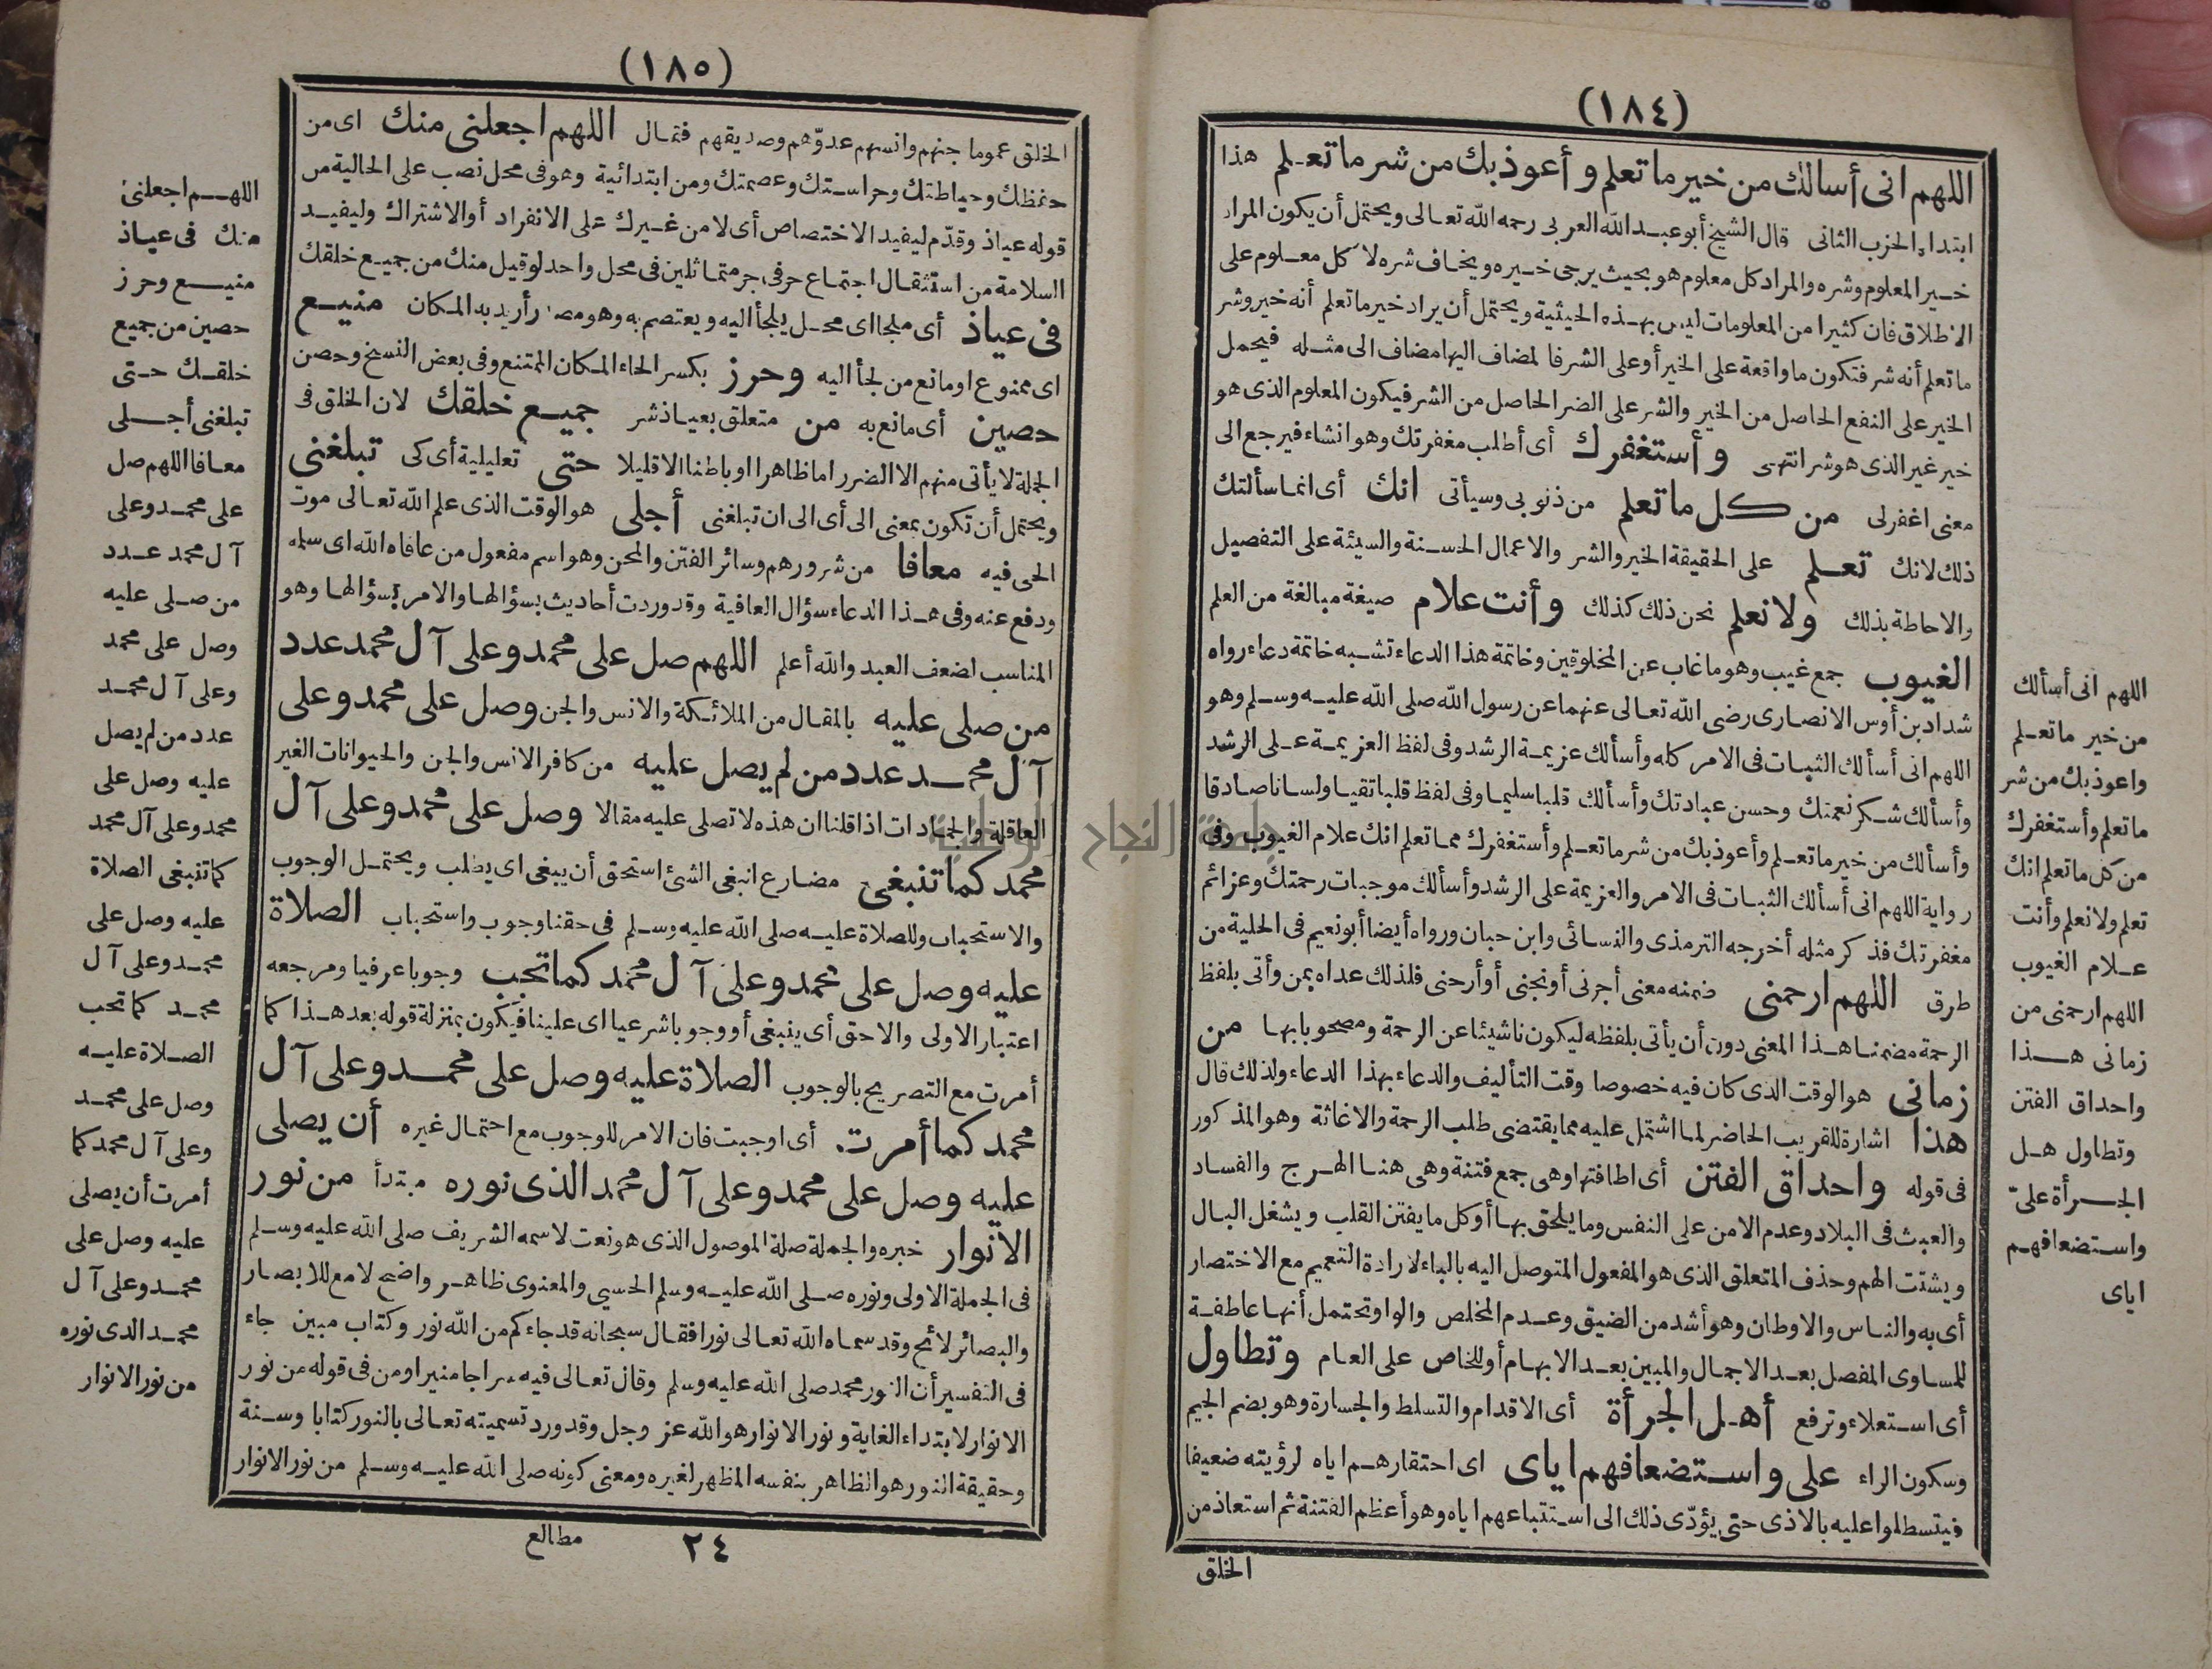 (١٨٤)
اللهم انى أسألك من خير ما تعلم وأعوذ بك من شر ما تعلم هذا
ابتداء الحزب الثانى قال الشيخ أبو عبد الله العربى رحمه الله تعالى ويحتمل أن يكون المراد
خير المعلوم وشره والمراد كل معلوم هو بحيث يرجى خيره ويخاف شره لا كل معلوم على
الاطلاق فان كثيرا من المعلومات ليس بهذه الحيثية ويحتمل أن يراد خير ما تعلم أنه خير وشر
ما تعلم أنه شر فتكون ما واقعة على الخير أو على الشر فالمضاف اليها مضاف الى مثله فيحمل
الخير على النفع الحاصل من الخير والشر على الضر الحاصل من الشر فيكون المعلوم الذى هو
خير غير الذى هو شر انتهى وأستغفرك أى أطلب مغفرتك وهو انشاء فيرجع الى
معنى اغفر لى من كل ما تعلم من ذنوبى وسيأتى انك أى انما سألتك
ذلك لانك تعلم على الحقيقة الخير والشر والاعمال الحسنة والسيئة على التفصيل
والاحاطة بذلك ولا نعلم نحن ذلك كذلك وأنت علام صيغة مبالغة من العلم
الغيوب جمع غيب وهو ما غاب عن المخلوقين وخاتمة هذا الدعاء تشبه خاتمة دعاء رواه
شداد بن أوس الانصارى رضى الله تعالى عنهما عن رسول الله صلى الله عليه وسلم وهو
اللهم انى أسألك الثبات فى الامر كله وأسألك عزيمة الرشد وفى لفظ العزيمة على الرشد
وأسألك شكر نعمتك وحسن عبادتك وأسألك قلبا سليما وفى لفظ قلبا تقيا ولسانا صادقا
وأسألك من خير ما تعلم وأعوذ بك من شر ما تعلم وأستغفرك مما تعلم انك علام الغيوب وفى
رواية اللهم انى أسألك الثبات فى الامر والعزيمة على الرشد وأسألك موجبات رحمتك وعزائم
مغفرتك فذكر مثله أخرجه الترمذى والنسائى وابن حبان ورواه أيضا أبو نعيم فى الحلية من
طرق اللهم ارحمنى ضمنه معنى أجرنى أو نجنى أو أرحنى فلذلك عداه بمن وأتى بلفظ
الرحمة مضمنا هذا المعنى دون أن يأتى بلفظه ليكون ناشئا عن الرحمة ومصحوبا بها من
زمانى هو الوقت الذى كان فيه خصوصا وقت التأليف والدعاء بهذا الدعاء ولذلك قال
هذا اشارة للقريب الحاضر لما اشتمل عليه مما يقتضى طلب الرحمة والاغاثة وهو المذكور
فى قوله واحداق الفتن أى اطافتها وهى جمع فتنة وهى هنا الهرج والفساد
والعبث فى البلاد وعدم الامن على النفس وما يلحق بها أو كل ما يفتن القلب ويشغل البال
ويشتت الهم وحذف المتعلق الذى هو المفعول المتوصل اليه بالباء لارادة التعميم مع الاختصار
أى به والناس والاوطان وهو أشد من الضيق وعدم المخلص والواو تحتمل أنها عاطفة
للمساوى المفصل بعد الاجمال والمبين بعد الابهام أو للخاص على العام وتطاول
أى استعلاء وترفع أهل الجرأة أى الاقدام والتسلط والجسارة وهو بضم الجيم
وسكون الراء على واستضعافهم اياى اى احتقارهم اياه لرؤيته ضعيفا
فيتسطلوا عليه بالاذى حتى يؤدّى ذلك الى استتباعهم اياه وهو أعظم الفتنة ثم استعاذ من
الخلق
اللهم انى أسألك
من خير ما تعلم
واعوذ بك من شر
ما تعلم وأستغفرك
من كل ما تعلم انك
تعلم ولا نعلم وأنت
علام الغيوب
اللهم ارحمنى من
زمانى هذا
واحداق الفتن
وتطاول هل
الجرأة علىّ
واستضعافهم
اياى
(١٨٥)
الخلق عموما جنهم وانسهم عدوّهم وصديقهم فقال اللهم اجعلنى منك اى من
حفظك وحياطتك وحراستك وعصمتك ومن ابتدائية وهو فى محل نصب على الحالية من
قوله عياذ وقدّم ليفيد الاختصاص أى لا من غيرك على الانفراد أو الاشتراك وليفيد
السلامة من استثقال اجتماع حرفى جر متماثلين فى محل واحد لو قيل منك من جميع خلقك
فى عياذ أى ملجا اى محل يلجأ اليه ويعتصم به وهو مصدر أريد به المكان منيع
اى ممنوع او مانع من لجأ اليه وحرز بكسر الحاء المكان الممتنع وفى بعض النسخ وحصن
حصين أى مانع به من متعلق بعياذ شر جميع خلقك لان الخلق فى
الجملة لا يأتى منهم الا الضرر اما ظاهرا او باطنا الا قليلا حتى تعليلية أى كى تبلغنى
ويحتمل أن تكون بمعنى الى أى الى ان تبلغنى أجلى هو الوقت الذى علم الله تعالى موت
الحى فيه معافا من شرورهم وسائر الفتن والمحن وهو اسم مفعول من عافاه الله اى سلمه
ودفع عنه وفى هذا الدعاء سؤال العافية وقد وردت أحاديث بسؤالها والامر بسؤالها وهو
المناسب لضعف العبد والله أعلم اللهم صل على محمد وعلى آل محمد عدد
من صلى عليه بالمقال من الملائكة والانس والجن وصل على محمد وعلى
آل محمد عدد من لم يصل عليه من كافر الانس والجن والحيوانات الغير
العاقلة والجمادات اذا قلنا ان هذه لا تصلى عليه مقالا وصل على محمد وعلى آل
محمد كما تنبغى مضارع انبغى الشئ استحق أن يبغى اى يطلب ويحتمل الوجوب
والاستحباب وللصلاة عليه صلى الله عليه وسلم فى حقنا وجوب واستحباب الصلاة
عليه وصل على محمد وعلى آل محمد كما تجب وجوبا عرفيا ومرجعه
اعتبار الاولى والاحق أى ينبغى أو وجوبا شرعيا اى علينا فيكون بمنزلة قوله بعد هذا كما
أمرت مع التصريح بالوجوب الصلاة عليه وصل على محمد وعلى آل
محمد كما أمرت. أى اوجبت فان الامر للوجوب مع احتمال غيره أن يصلى
عليه وصل على محمد وعلى آل محمد الذى نوره مبتدأ من نور
الانوار خبره والجملة صلة الموصول الذى هو نعت لاسمه الشريف صلى الله عليه وسلم
فى الجملة الاولى ونوره صلى الله عليه وسلم الحسى والمعنوى ظاهر واضح لامع للابصار
والبصائر لائح وقد سماه الله تعالى نورا فقال سبحانه قد جاءكم من الله نور وكتاب مبين جاء
فى التفسير أن النور محمد صلى الله عليه وسلم وقال تعالى فيه سراجا منيرا ومن فى قوله من نور
الانوار لابتداء الغاية ونور الانوار هو الله عز وجل وقد ورد تسميته تعالى بالنور كتابا وسنة
وحقيقة النور هو الظاهر بنفسه المظهر لغيره ومعنى كونه صلى الله عليه وسلم من نور الانوار
٢٤ مطالع
اللهم اجعلنى
منك فى عياذ
منيع وحرز
حصين من جميع
خلقك حتى
تبلغنى أجلى
معافا اللهم صل
على محمد وعلى
آل محمد عدد
من صلى عليه
وصل على محمد
وعلى آل محمد
عدد من لم يصل
عليه وصل على
محمد وعلى آل محمد
كما تنبغى الصلاة
عليه وصل على
محمد وعلى آل
محمد كما تجب
الصلاة عليه
وصل على محمد
وعلى آل محمد كما
أمرت أن يصلى
عليه وصل على
محمد وعلى آل
محمد الذى نوره
من نور الانوار
جامعة النجاح الوطنية